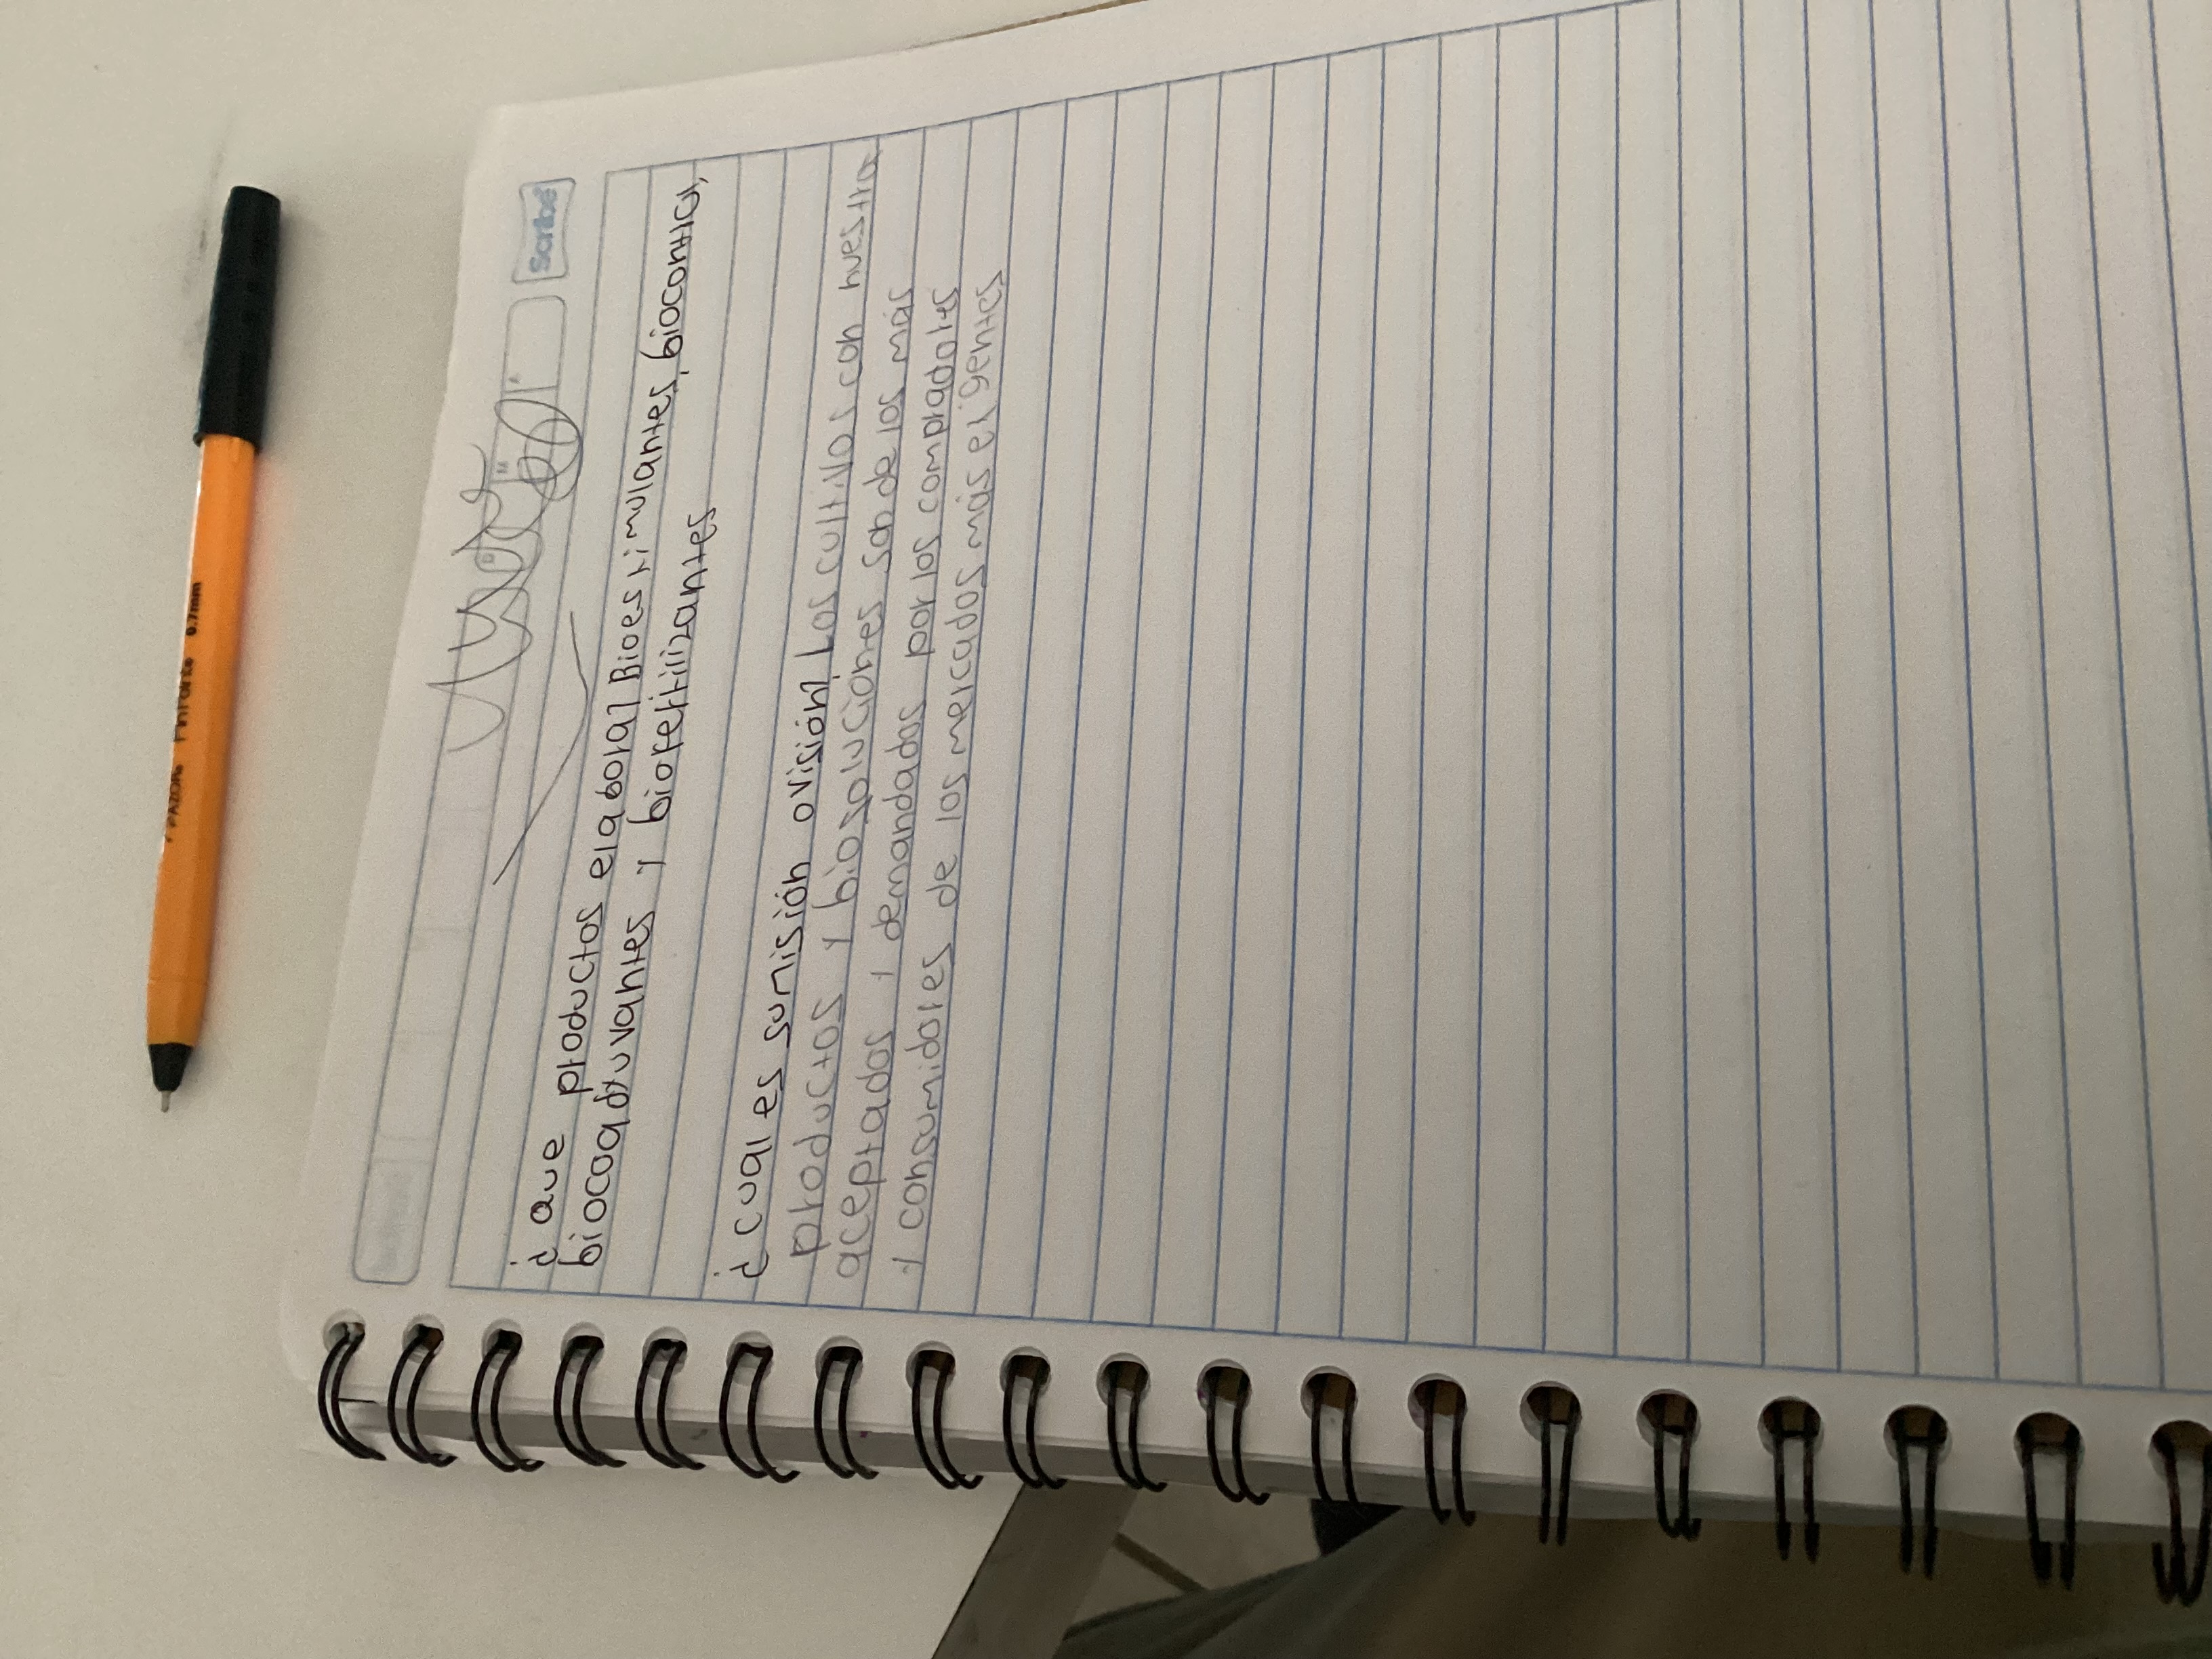 Scribe
D M A
¿ que productos elabora? Bioestimulantes, biocontrol,
biocoadyuvantes y biofertilizantes
¿ cual es su misión o visión? Los cultivos con nuestros
productos y biosoluciones son de los más
aceptados y demandados por los compradores
y consumidores de los mercados más exigentes
0.7mm